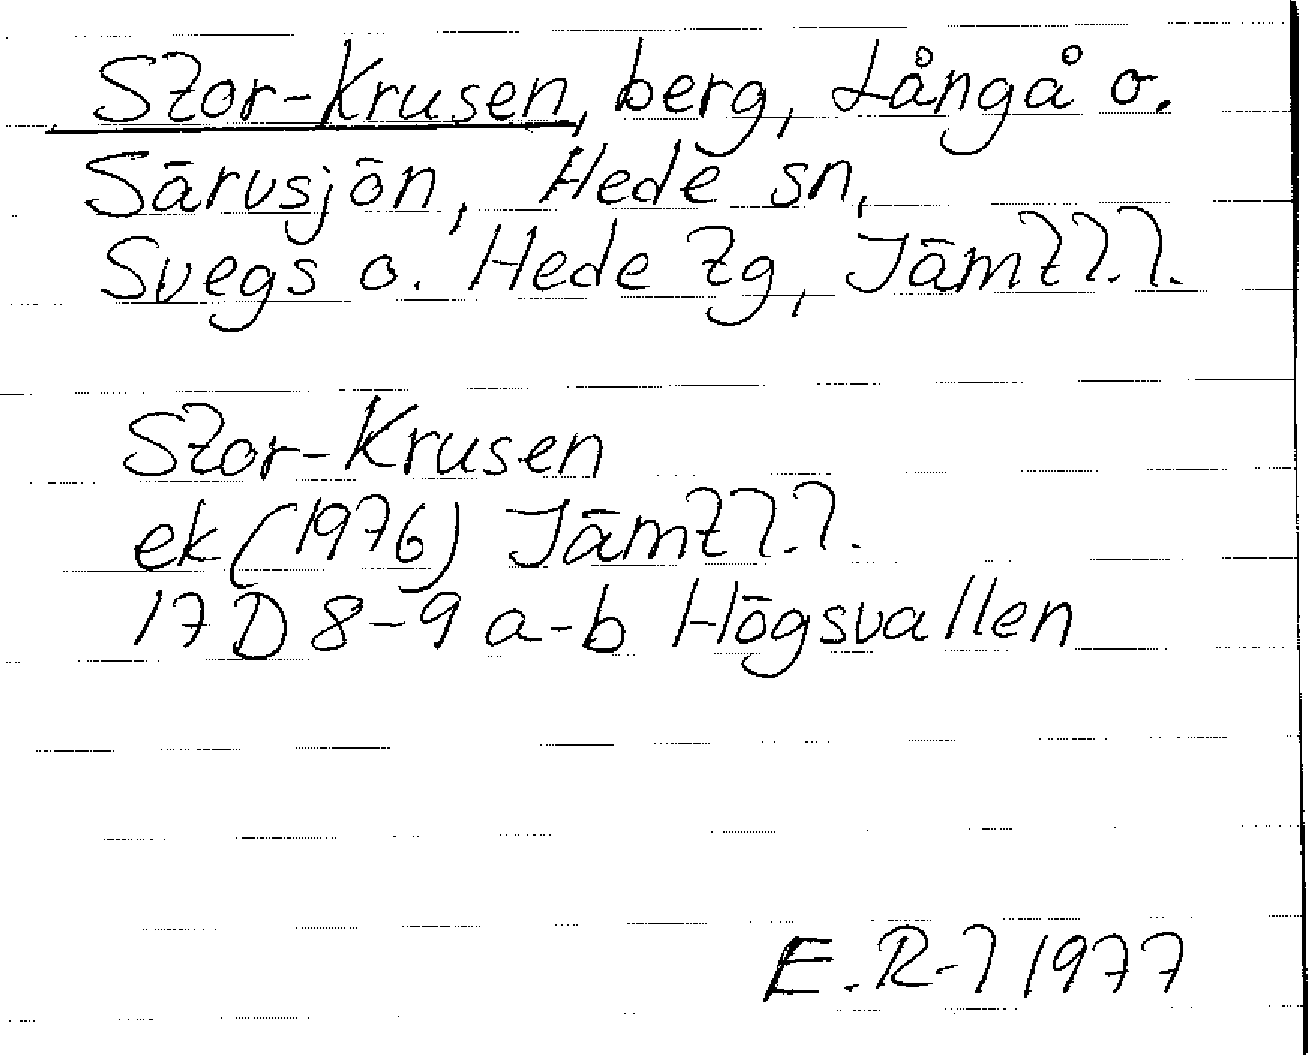 Stor-Krusen, berg, Långå o.
Särvsjön, Hede sn,
Svegs o. Hede tg, Jämtl.l.
Stor-Krusen
ek (1976) Jämtl.l.
17 D 8-9 a-b Högsvallen
E.R-l 1977